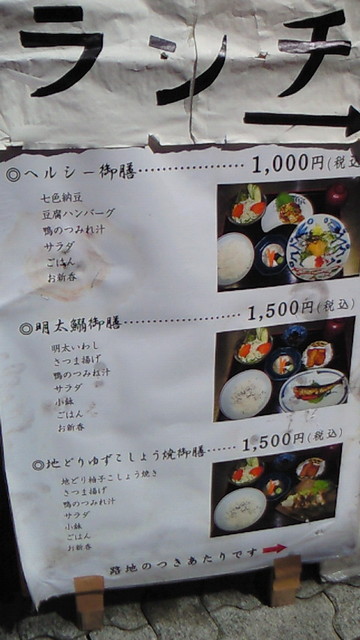 ランチ
◎ヘルシー御膳……………… 1,000円(税込
七色納豆
豆腐ハンバーグ
鴨のつみれ汁
サラダ
ごはん
お新香
◎明太鰯御膳……………… 1,500円(税込)
明太いわし
さつま揚げ
鴨のつみれ汁
サラダ
小鉢
ごはん
お新香
◎地どりゆずこしょう焼御膳…… 1,500円(税込)
地どり柚子こしょう焼き
さつま揚げ
鴨のつみれ汁
サラダ
小鉢
ごはん
お新香
路地のつきあたりです